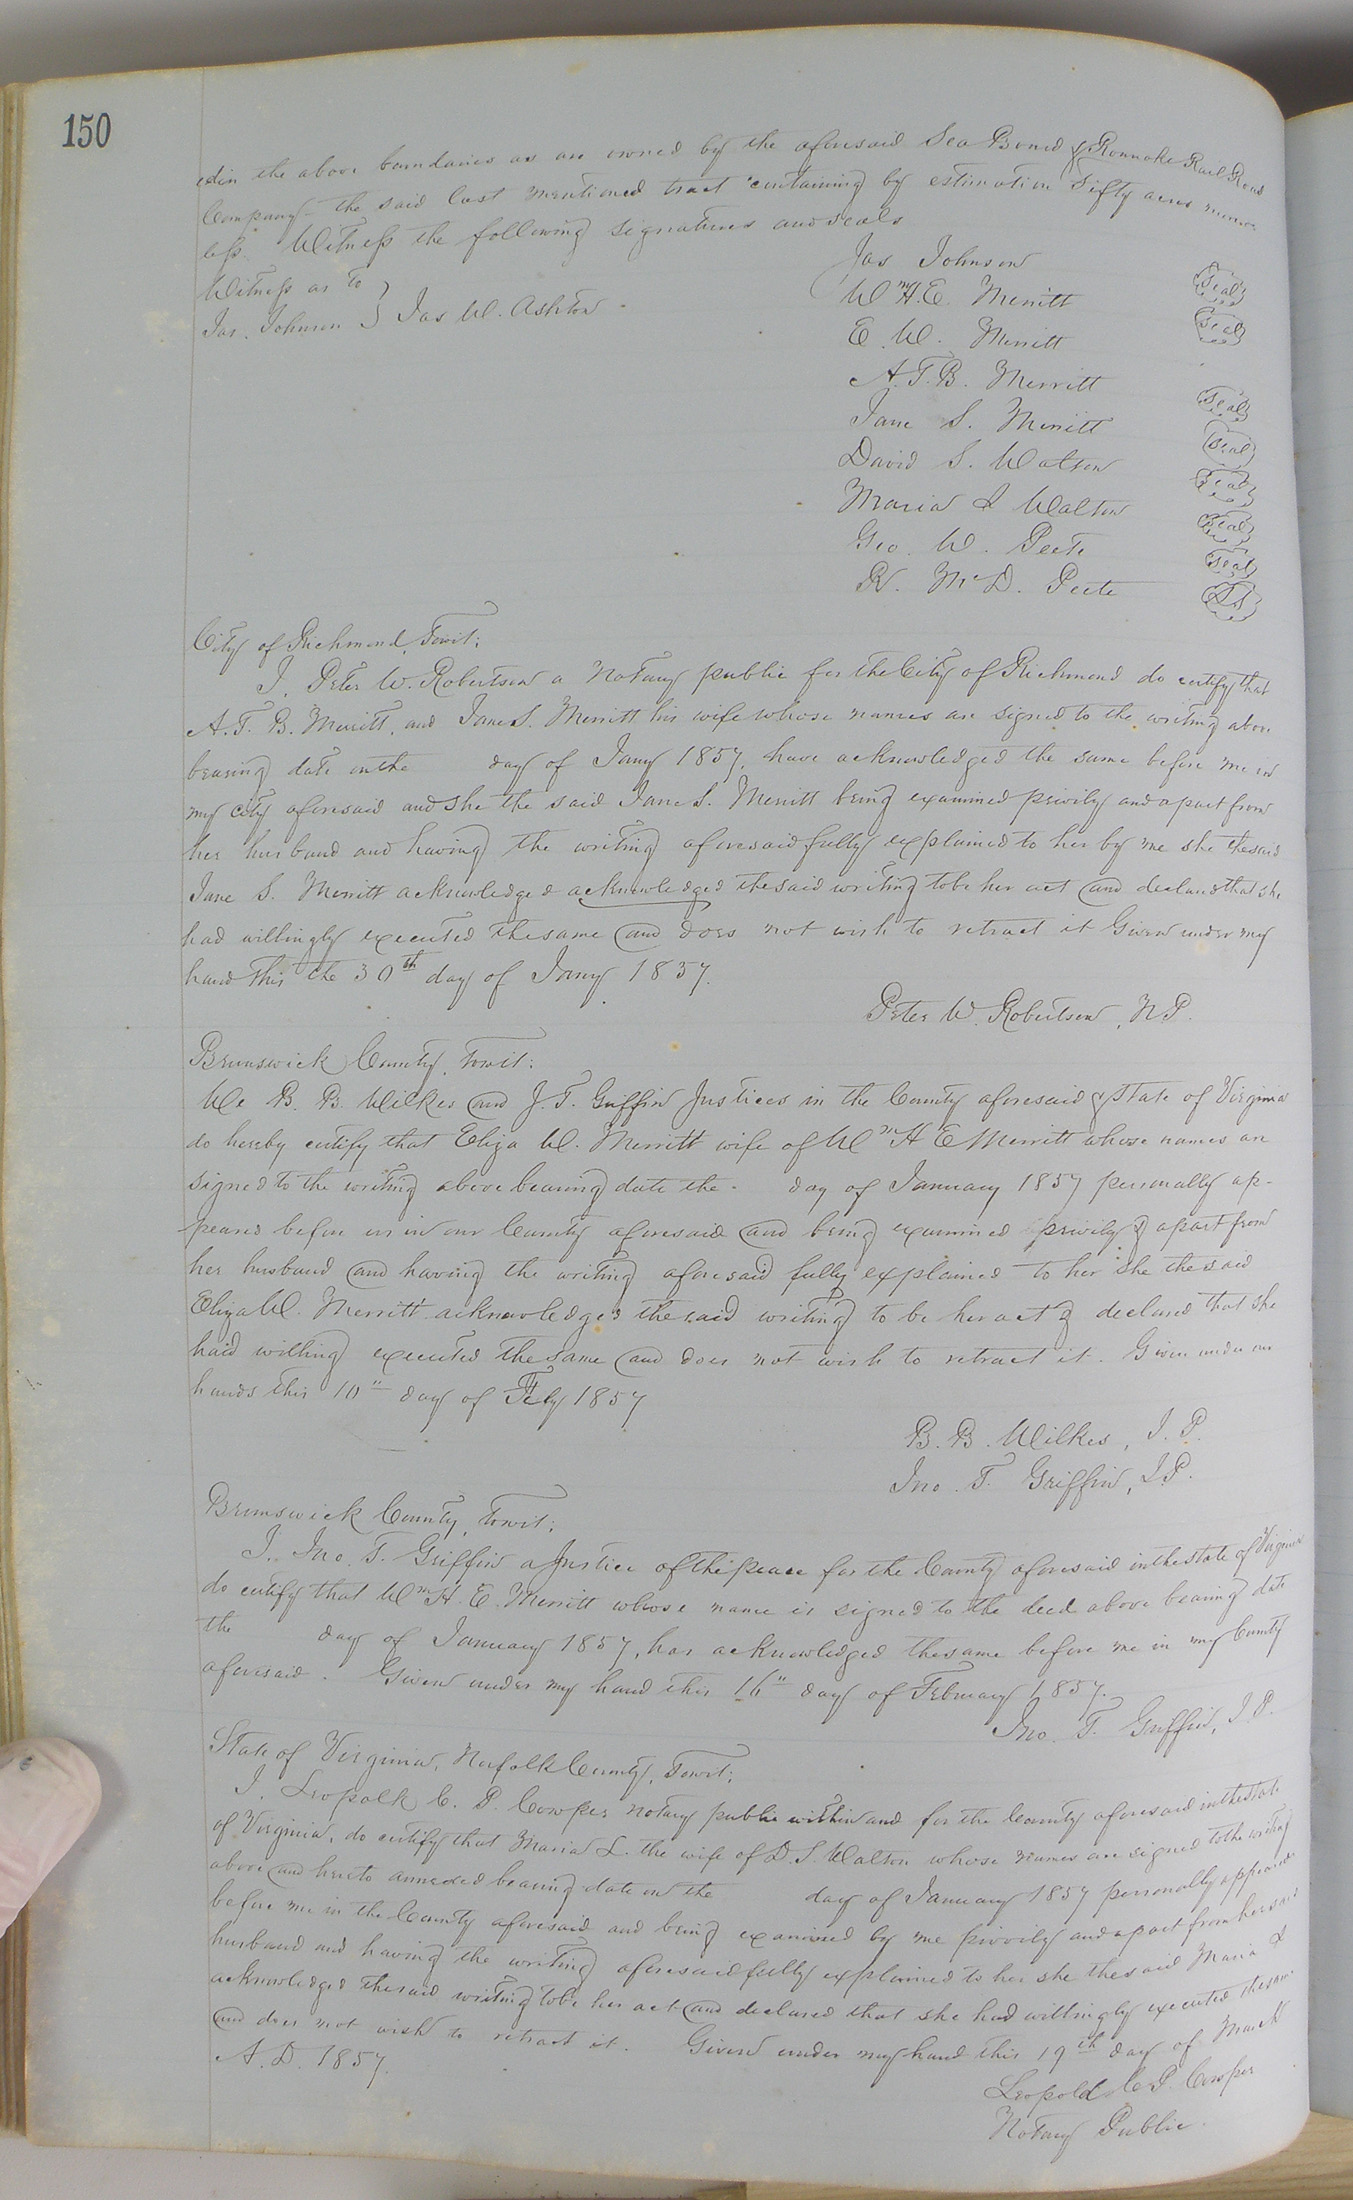 150
edin the above boundaries as are owned by the aforesaid Sea Board & Roanoke Rail Road
Company - the said last mentioned tract containing by estimation fifty acres more or
less. Witness the following signatures and seals
Jas Johnson (seal)
Witness as to
Jas. Johnson } Jas W. Ashton
Wm H. E. Merritt (seal)
E. W. Merritt
A. T. B. Merritt (seal)
Jane S. Merritt (seal)
David S. Walton (seal)
Maria L Walton (seal)
Geo. W. Peete (seal)
R. McD. Peete (LS)
City of Richmond, Towit;
I, Peter W. Robertson a Notary public for the City of Richmond do certify that
A. T. B. Merritt, and Jane S. Merritt his wife whose names are signed to the writing above
bearing date on the day of Jany 1857, have acknowledged the same before me in
my city aforesaid and she the said Jane S. Merritt being examined privily and apart from
her husband and having the writing aforesaid fully explained to her by me she the said
Jane S. Merritt acknowledged acknowledged the said writing to be her act and declared that she
had willingly executed the same and does not wish to retract it Given under my
hand this the 30th day of Jany 1857.
Peter W. Robertson, N.P.
Brunswick County, towit:
We B. B. Wilkes and J. T. Griffin Justices in the County aforesaid & State of Virginia
do hereby certify that Eliza W. Merritt wife of Wm H E Merritt whose names are
signed to the writing above bearing date the - day of January 1857 personally ap-
peared before us in our County aforesaid and being examined privily & apart from
her husband and having the writing aforesaid fully explained to her she the said
Eliza W. Merritt acknowledged the said writing to be her act & declared that she
had willing executed the same and does not wish to retract it. Given under our
hands this 10" day of Feby 1857
B. B. Wilkes, J. P.
Jno. T. Griffin, J.P.
Brunswick County, towit;
I, Jno. T. Griffin a Justice of the peace for the County aforesaid in the state of Virginia
do certify that Wm H. E. Merritt whose name is signed to the deed above bearing date
the day of January 1857, has acknowledged the same before me in my County
aforesaid. Given under my hand this 16" day of February 1857.
Jno. T. Griffin, J. P.
State of Virginia, Norfolk County, Towit;
I, Leopolk C. P. Cowper Notary public within and for the County aforesaid in the State
of Virginia, do certify that Maria L. the wife of D. S. Walton whose names are signed to the writing
above and hereto annexed bearing date on the day of January 1857 personally appeared
before me in the County aforesaid and being examined by me privily and apart from her said
husband and having the writing aforesaid fully explained to her she the said Maria L
acknowledged the said writing to be her act and declared that she had willingly executed the same
and does not wish to retract it. Given under my hand this 19th day of March
A. D. 1857.
Leopold C. P. Cowper
Notary Public.